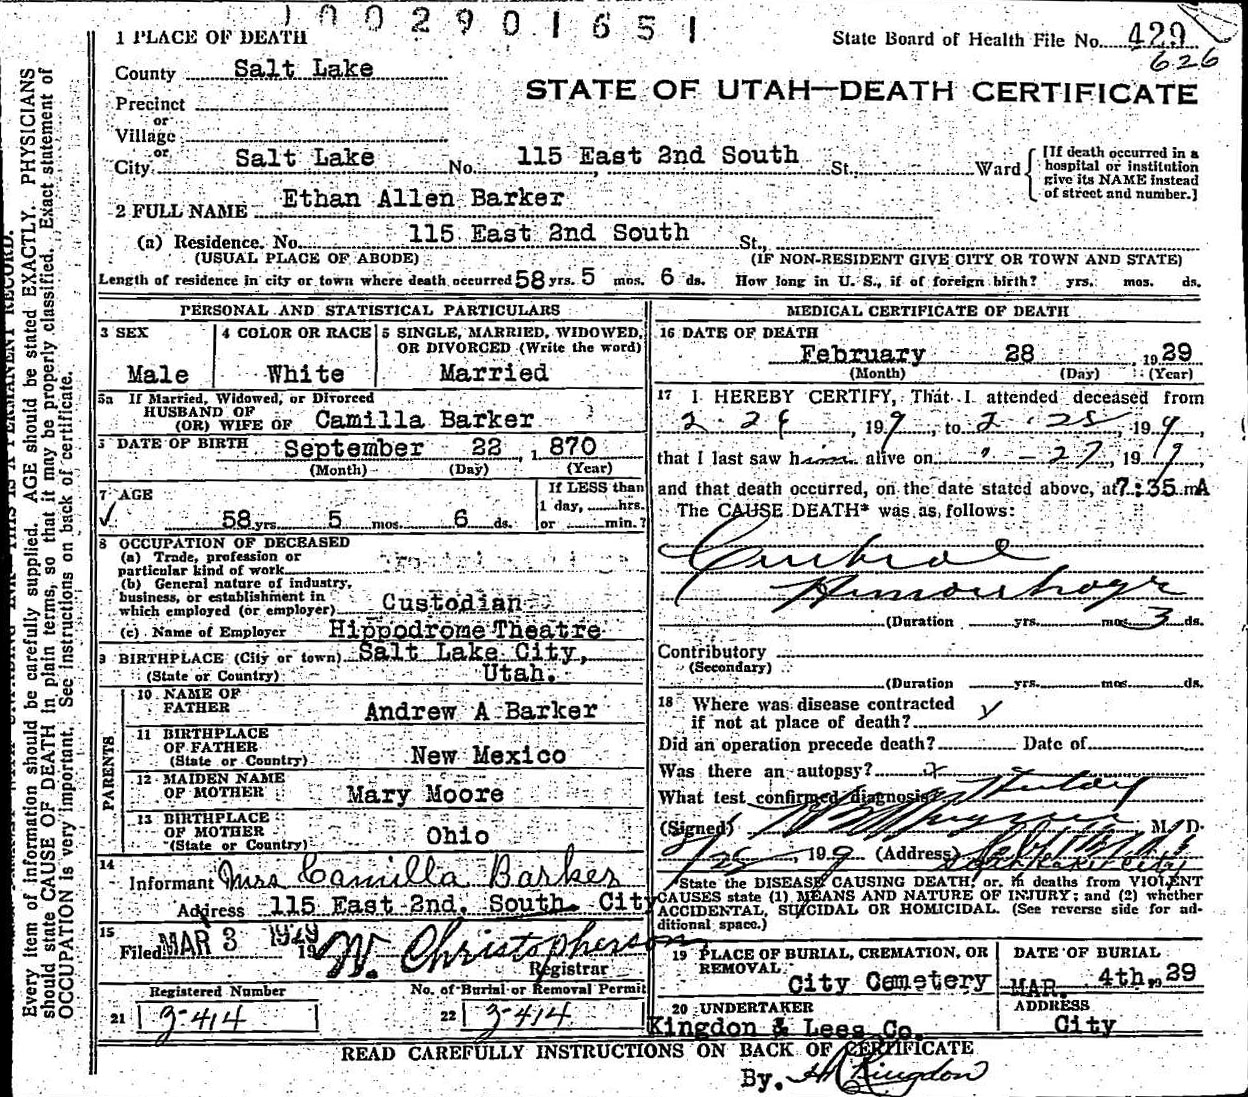 1002901651
1 PLACE OF DEATH
State Board of Health File No. 429
626
County Salt Lake
STATE OF UTAH—DEATH CERTIFICATE
Precinct
or
Village
or
City Salt Lake No. 115 East 2nd South St., Ward
[If death occurred in a
hospital or institution
give its NAME instead
of street and number.]
2 FULL NAME Ethan Allen Barker
(a) Residence. No. 115 East 2nd South St.,
(USUAL PLACE OF ABODE) (IF NON-RESIDENT GIVE CITY OR TOWN AND STATE)
Length of residence in city or town where death occurred 58 yrs. 5 mos. 6 ds. How long in U. S., if of foreign birth? yrs. mos. ds.
PERSONAL AND STATISTICAL PARTICULARS
3 SEX
Male
4 COLOR OR RACE
White
5 SINGLE, MARRIED, WIDOWED,
OR DIVORCED (Write the word)
Married
5a If Married, Widowed, or Divorced
HUSBAND OF
(OR) WIFE OF Camilla Barker
DATE OF BIRTH September 22, 1870
(Month) (Day) (Year)
7 AGE
58 yrs. 5 mos. 6 ds.
If LESS than
1 day, hrs.
or min.?
8 OCCUPATION OF DECEASED
(a) Trade, profession or
particular kind of work
(b) General nature of industry,
business, or establishment in
which employed (or employer) Custodian
(c) Name of Employer Hippodrome Theatre
9 BIRTHPLACE (City or town) Salt Lake City,
(State or Country) Utah.
PARENTS
10 NAME OF
FATHER Andrew A Barker
11 BIRTHPLACE
OF FATHER
(State or Country) New Mexico
12 MAIDEN NAME
OF MOTHER Mary Moore
13 BIRTHPLACE
OF MOTHER
(State or Country) Ohio
14
Informant Mrs Camilla Barker
Address 115 East 2nd. South. City
15
Filed MAR 3 1929 19 W. Christopherson
Registrar
Registered Number
21 3-414
No. of Burial or Removal Permit
22 3-414
MEDICAL CERTIFICATE OF DEATH
16 DATE OF DEATH
February 28 1929
(Month) (Day) (Year)
17 I HEREBY CERTIFY, That I attended deceased from
, 199, to 2-28, 199,
that I last saw him alive on " - 27, 199,
and that death occurred, on the date stated above, at 7:35 mA
The CAUSE DEATH* was as follows:
Cerebral
Hemorrhage
(Duration yrs. mos. 3 ds.
Contributory
(Secondary)
(Duration yrs. mos. ds.
18 Where was disease contracted
if not at place of death?
Did an operation precede death? Date of
Was there an autopsy?
What test confirmed diagnosis?
(Signed) M. D.
, 199 (Address)
Salt Lake City
*State the DISEASE CAUSING DEATH, or, in deaths from VIOLENT
CAUSES state (1) MEANS AND NATURE OF INJURY; and (2) whether
ACCIDENTAL, SUICIDAL OR HOMICIDAL. (See reverse side for ad-
ditional space.)
19 PLACE OF BURIAL, CREMATION, OR
REMOVAL
City Cemetery
DATE OF BURIAL
MAR. 4th, 1929
20 UNDERTAKER
Kingdon & Lees Co.
ADDRESS
City
READ CAREFULLY INSTRUCTIONS ON BACK OF CERTIFICATE
By. Kingdon
Every item of information should be carefully supplied. AGE should be stated EXACTLY. PHYSICIANS
should state CAUSE OF DEATH in plain terms, so that it may be properly classified. Exact statement of
OCCUPATION is very important. See instructions on back of certificate.